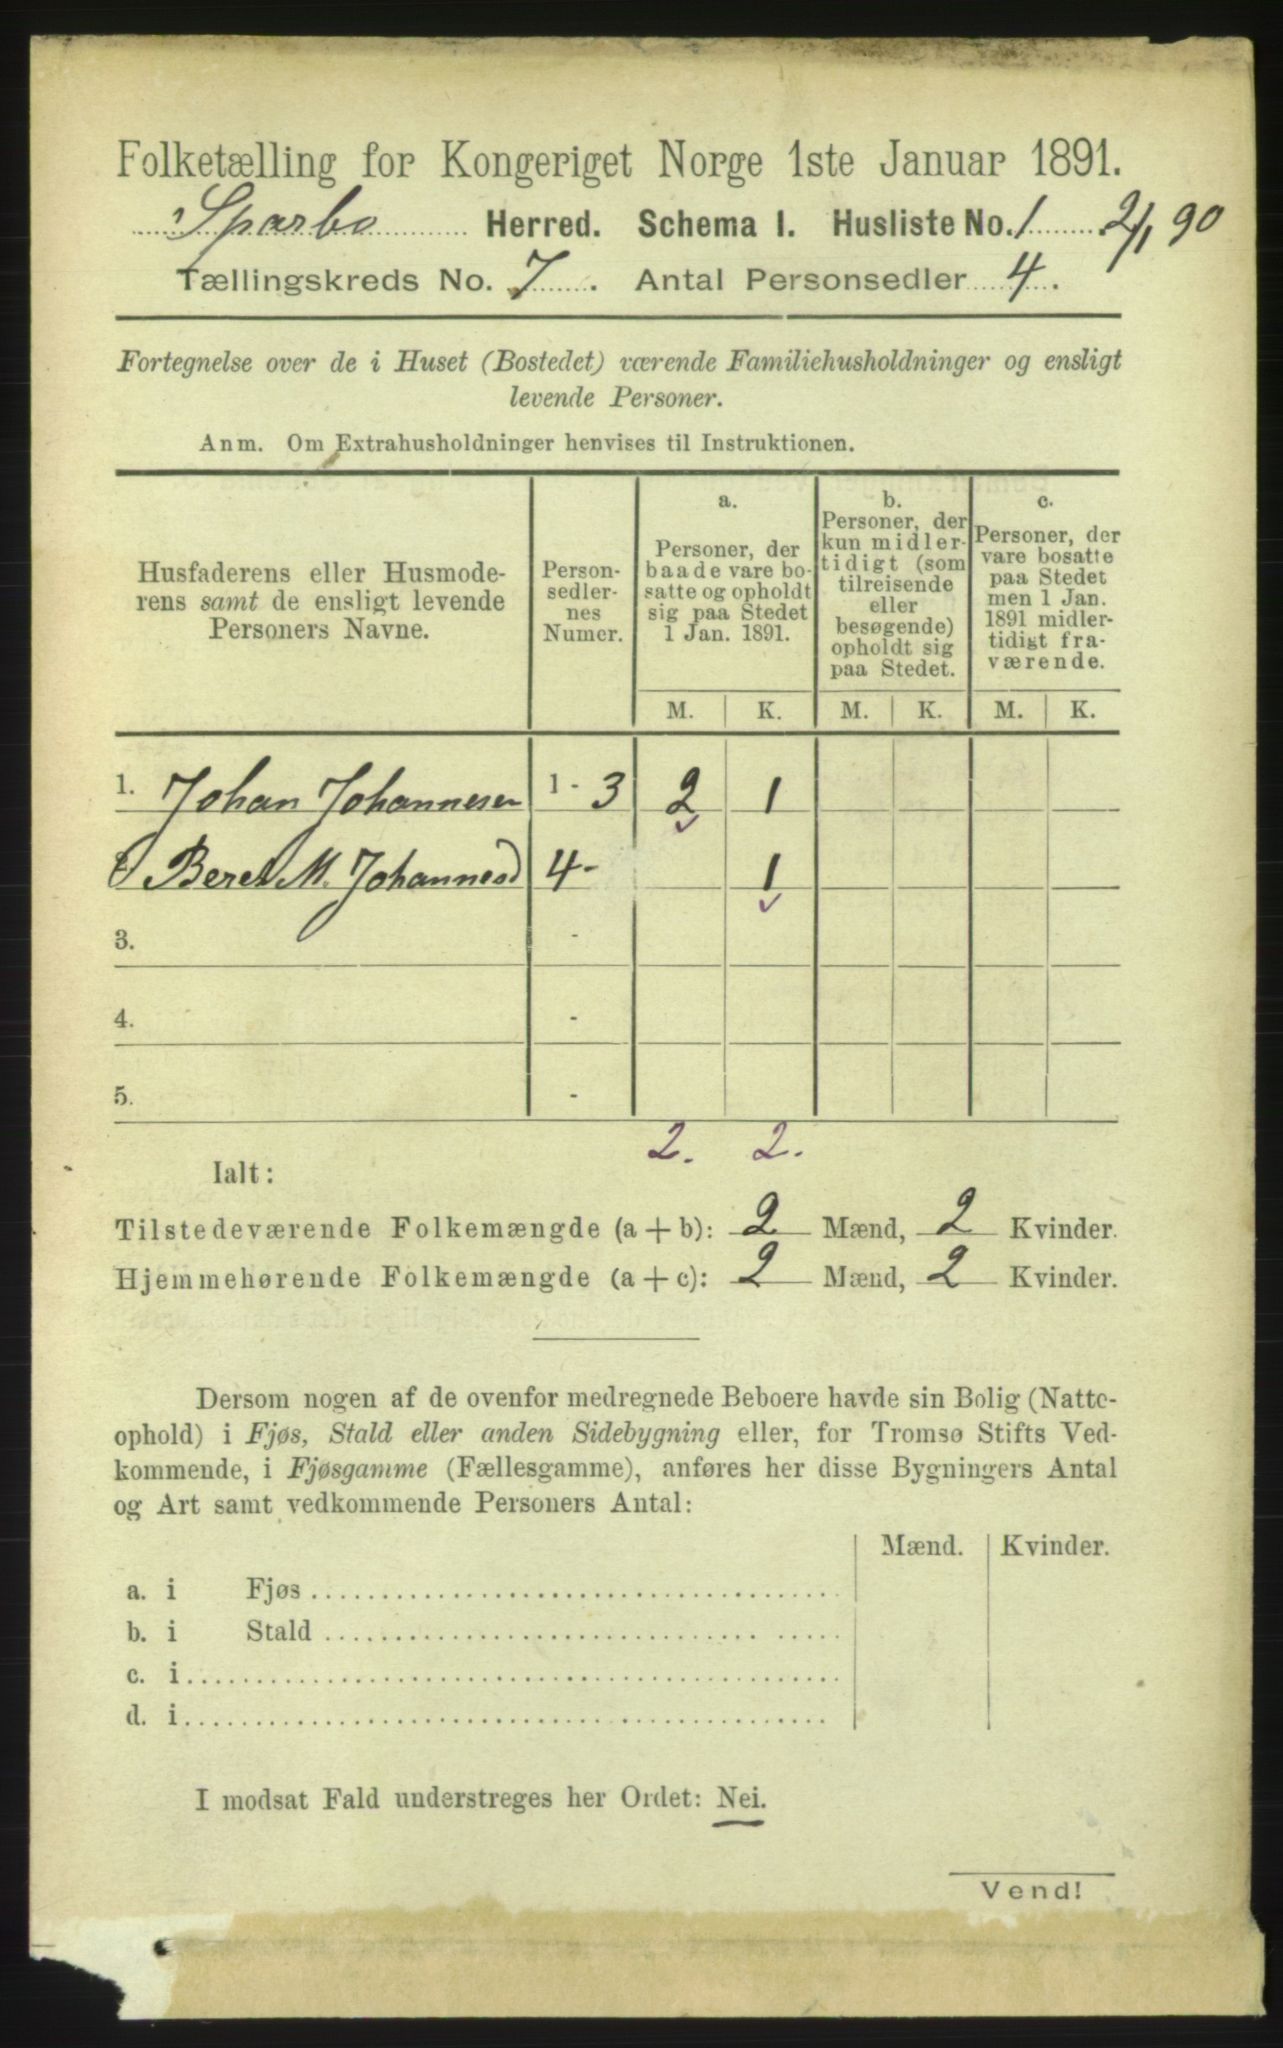 Folketælling for Kongeriget Norge 1ste Januar 1891.
Sparbo Herred. Schema I. Husliste No. 1 2/1 90
Tællingskreds No. 7. Antal Personsedler 4.
Fortegnelse over de i Huset (Bostedet) værende Familiehusholdninger og ensligt
levende Personer.
Anm. Om Extrahusholdninger henvises til Instruktionen.
Husfaderens eller Husmode-
rens samt de ensligt levende
Personers Navne.
Person-
sedler-
nes
Numer.
a.
Personer, der
baade vare bo-
satte og opholdt
sig paa Stedet
1 Jan. 1891.
b.
Personer, der
kun midler-
tidigt (som
tilreisende
eller
besøgende)
opholdt sig
paa Stedet.
c.
Personer, der
vare bosatte
paa Stedet
men 1 Jan.
1891 midler-
tidigt fra-
værende.
M. K. M. K. M. K.
1. Johan Johannesen 1 - 3 2 1
Beret M. Johannesd 4 - 1
3. -
4. -
5. -
2. 2.
Ialt:
Tilstedeværende Folkemængde (a + b): 2 Mænd, 2 Kvinder.
Hjemmehørende Folkemængde (a + c): 2 Mænd, 2 Kvinder.
Dersom nogen af de ovenfor medregnede Beboere havde sin Bolig (Natte-
ophold) i Fjøs, Stald eller anden Sidebygning eller, for Tromsø Stifts Ved-
kommende, i Fjøsgamme (Fællesgamme), anføres her disse Bygningers Antal
og Art samt vedkommende Personers Antal:
Mænd. Kvinder.
a. i Fjøs
b. i Stald
c. i
d. i
I modsat Fald understreges her Ordet: Nei.
Vend!